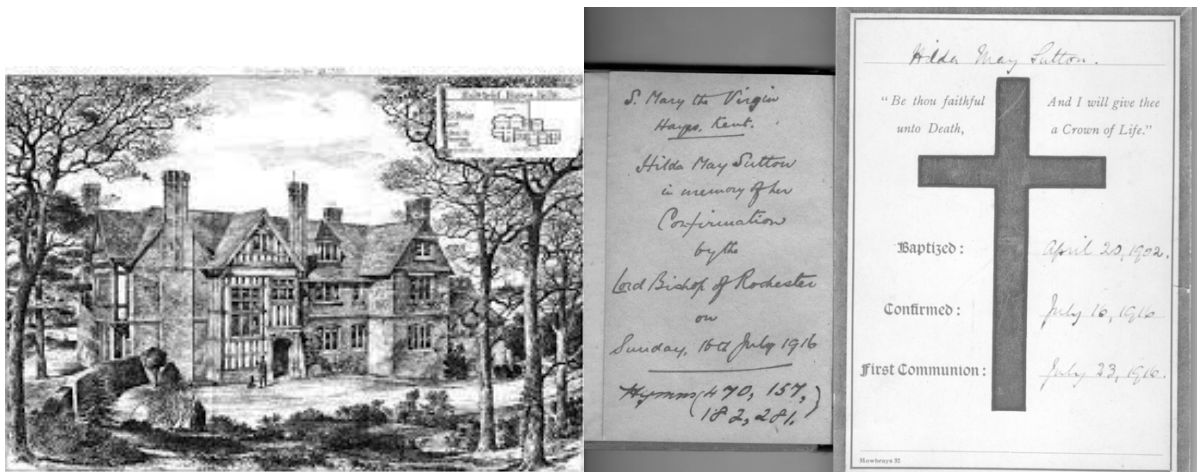 S. Mary the Virgin
Hayes, Kent.
Hilda May Sutton
in memory of her
Confirmation
by the
Lord Bishop of Rochester
on
Sunday, 16th July 1916
Hymns (470, 157,
182, 281.)
Hilda May Sutton.
"Be thou faithful
unto Death,
And I will give thee
a Crown of Life."
Baptized: April 20, 1902.
Confirmed: July 16, 1916
First Communion: July 23, 1916.
Mowbrays 32